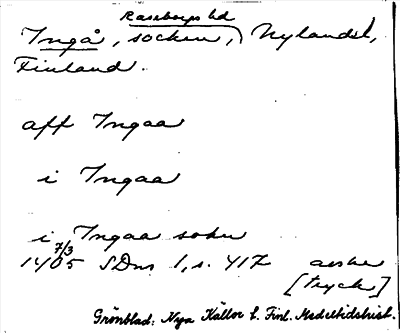 Raseborgs hd
Ingå, socken, Nylands l,
Finland.
aff Ingaa
i Ingaa
i Ingaa sokn
7/3
1405 SDns 1, s. 417 avskr
[tryck]
Grönblad: Nya Källor t. Finl. Medeltidshist.